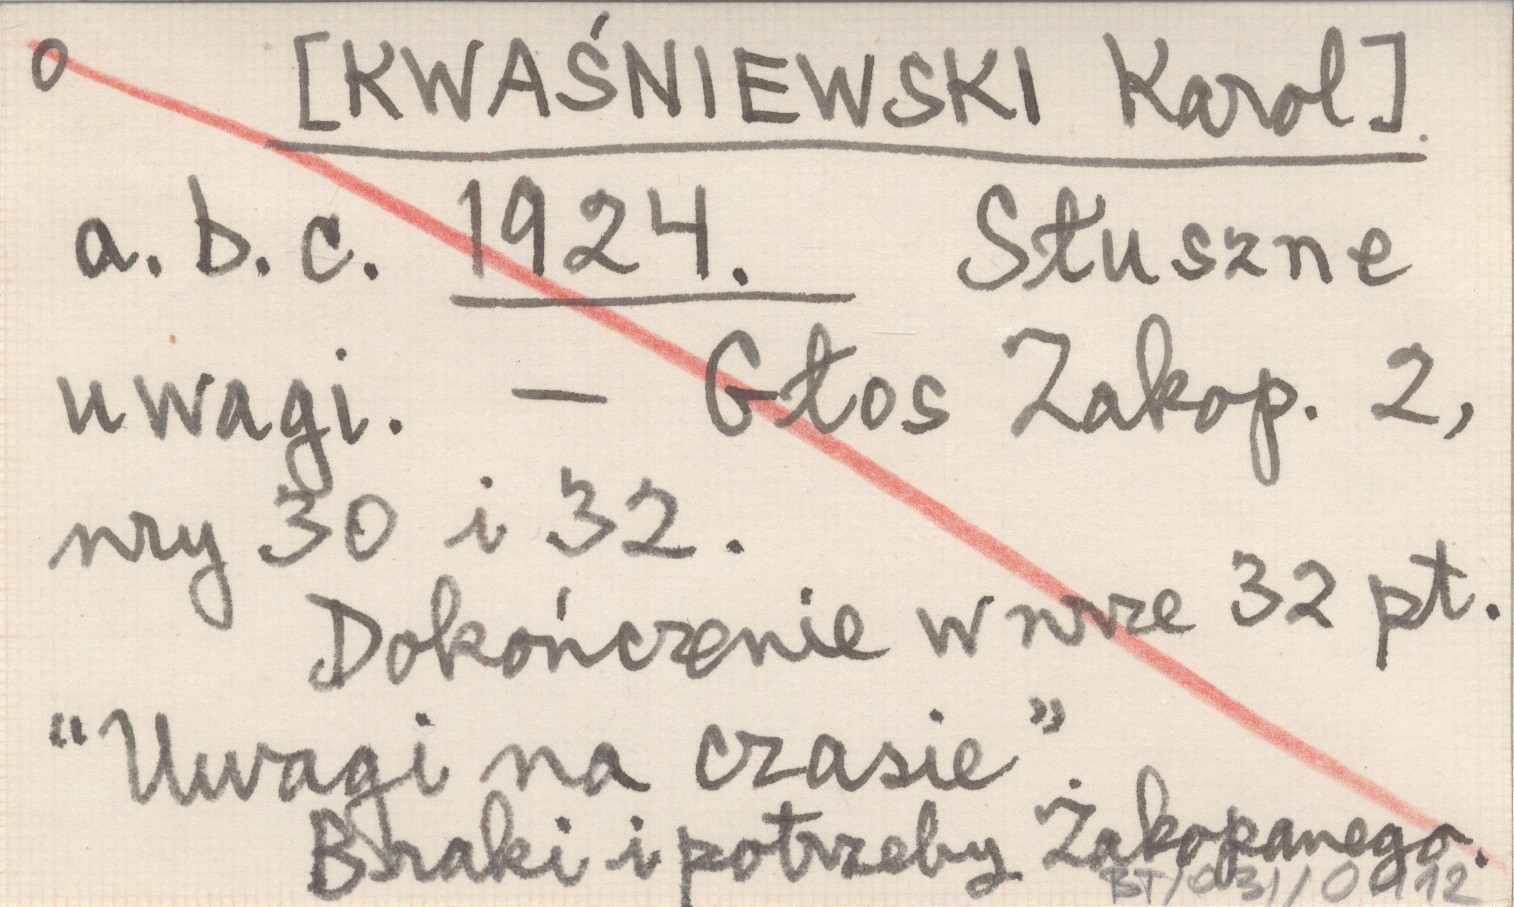 o [KWAŚNIEWSKI Karol].
a. b. c. 1924. Słuszne
uwagi. — Głos Zakop. 2,
nry 30 i 32.
Dokończenie w nrze 32 pt.
"Uwagi na czasie".
Braki i potrzeby Zakopanego.